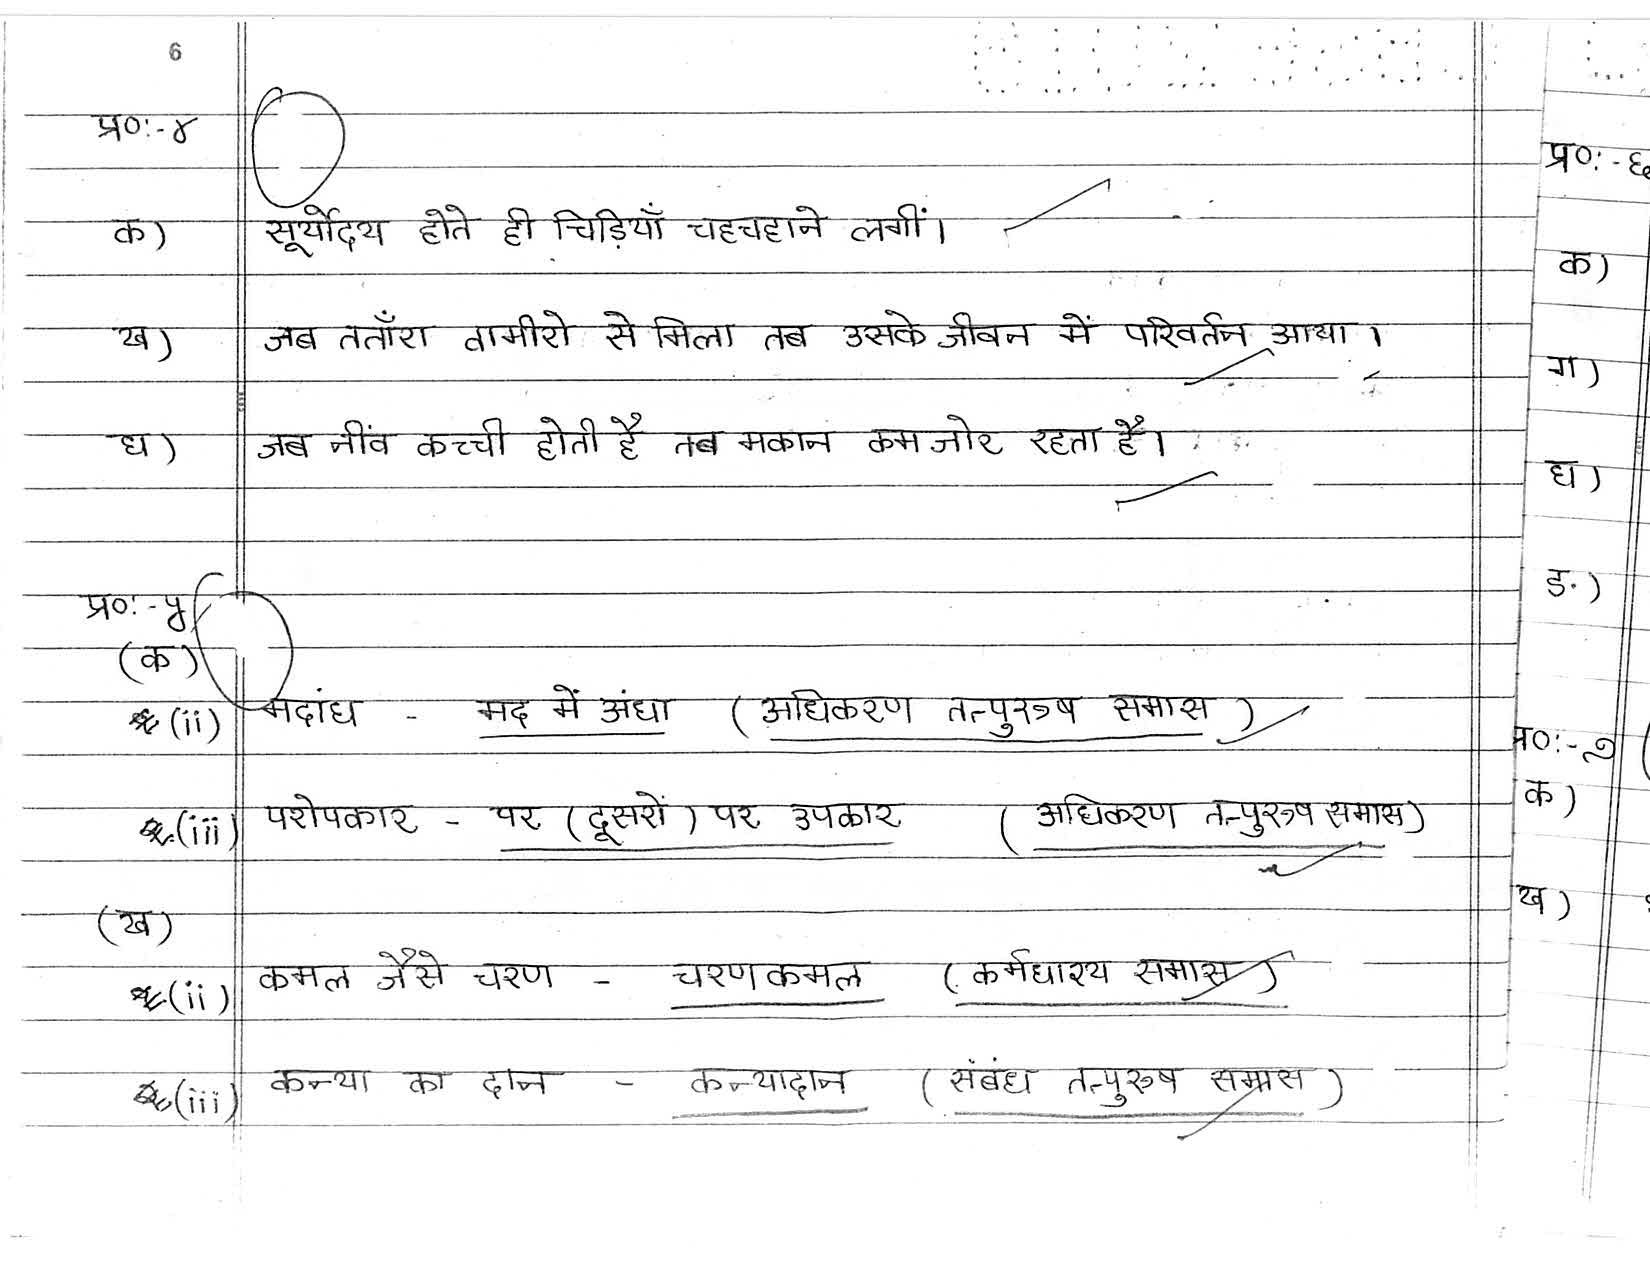 6
प्र०:-४
क) सूर्योदय होते ही चिड़ियाँ चहचहाने लगीं।
ख) जब तताँरा वामीरो से मिला तब उसके जीवन में परिवर्तन आया।
घ) जब नींव कच्ची होती है तब मकान कमजोर रहता है।
प्र०:-५
(क)
(ii) मदांध - मद में अंधा (अधिकरण तत्पुरुष समास)
(iii) परोपकार - पर (दूसरों) पर उपकार (अधिकरण तत्पुरुष समास)
(ख)
(ii) कमल जैसे चरण - चरणकमल (कर्मधारय समास)
(iii) कन्या का दान - कन्यादान (संबंध तत्पुरुष समास)
प्र०:-६
क)
ग)
घ)
ङ)
प्र०:-७
क)
ख)